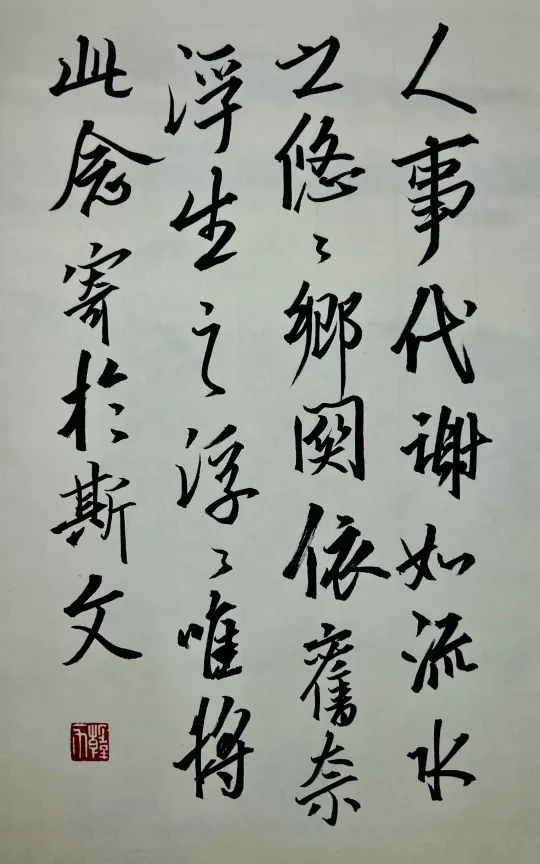 人事代谢如流水
之悠〻鄉関依舊奈
浮生之浮〻唯將
此念寄於斯文